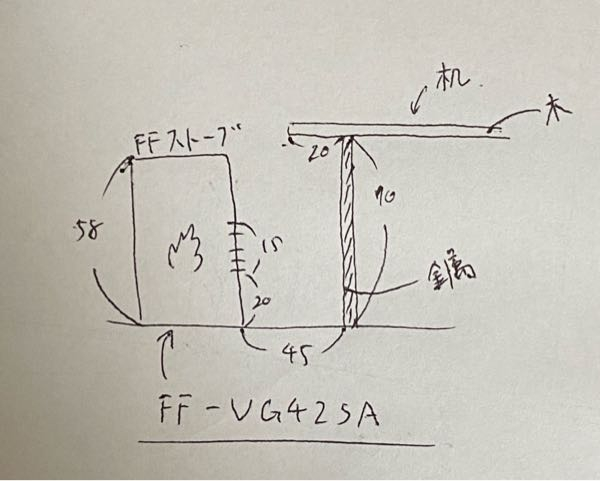 机
木
FFストーブ
20
58
70
15
金属
20
45
FF-VG42SA